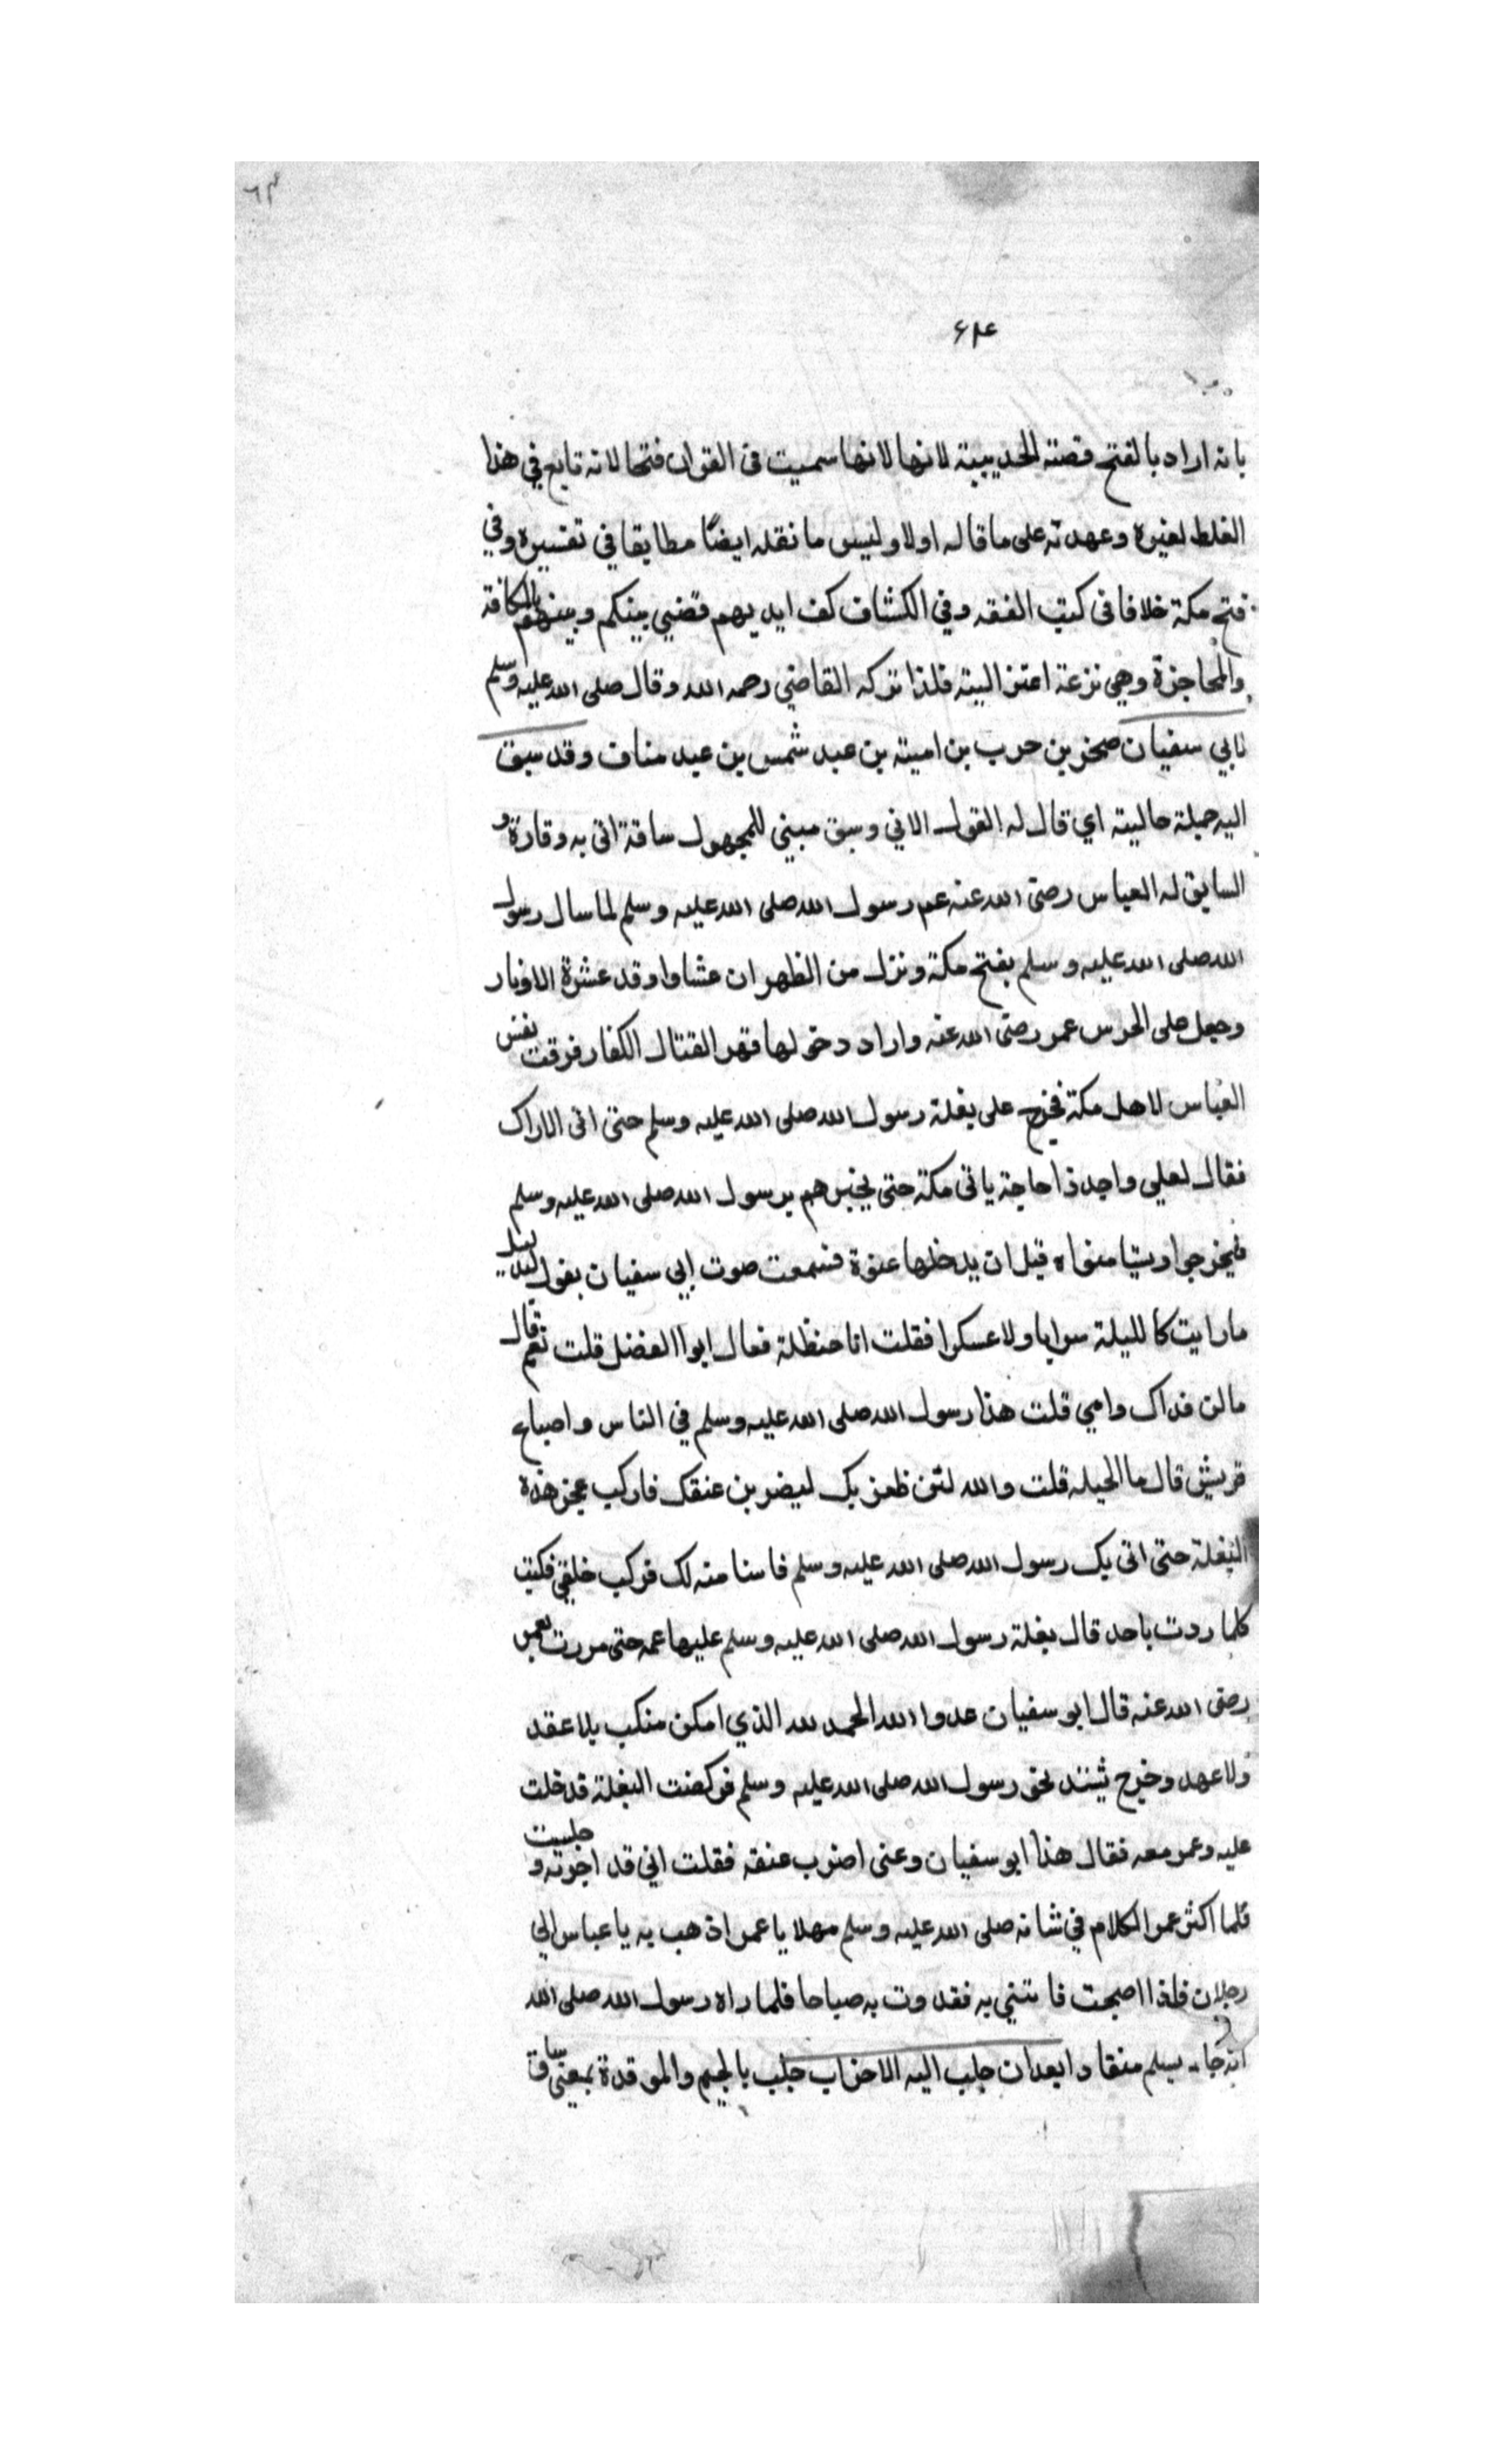 ٦٣
٦٣٤
بانه اراد بالفتح قصته الحديبية لانها لانها سميت فى القران فتحا لانه تابع في هذا
الغلط لغيره وعهدته على ما قاله اولا وليس ما نقله ايضًا مطابقا في تفسيره وفي
فتح مكة خلافا فى كتب الفقه وفي الكشاف كف ايديهم قضي بينكم وبينهم بالمكافة
والمحاجزة وهي نزعة اعتزالية فلذا تركه القاضي رحمه الله وقال صلى الله عليه وسلم
لابي سفيان صخر بن حرب بن امية بن عبد شمس بن عبد مناف وقد سيق
اليه جملة حالية اي قال له القول الاتي وسيق مبني للمجهول ساقة اتى به وقاره و
السايق له العباس رضى الله عنه عم رسول الله صلى الله عليه وسلم لما سال رسول
الله صلى الله عليه وسلم بفتح مكة ونزل من الظهران عشاوا وقد عشرة الاونار
وجعل على الحرس عمر رضى الله عنه واراد دخولها قهر القتال الكفار فرقت نفس
العباس لاهل مكة فخرج على بغلة رسول الله صلى الله عليه وسلم حتى اتى الاراك
فقال لعلي واجد ذا حاجة ياتى مكة حتى يخبرهم برسول الله صلى الله عليه وسلم
فيخرجوا ويستامنواه قبل ان يدخلها عنوة فسمعت صوت ابي سفيان يقول لبديل
ما رايت كالليلة سرايا ولا عسكرا فقلت انا حنظلة فعال ابوا الفضل قلت نعم قال
مالن فداك وامي قلت هذا رسول الله صلى الله عليه وسلم في الناس واصباح
قريش قال ما الحيله قلت والله لئن ظفر بك ليضربن عنقك فاركب عجز هذه
البغلة حتى اتى بك رسول الله صلى الله عليه وسلم فاستامنه لك فركب خلفي فكنت
كلما ردت باحد قال بغلة رسول الله صلى الله عليه وسلم عليها عمه حتى مررت بعمر
رضى الله عنه قال ابو سفيان عدوا الله الحمد لله الذي امكن منكب بلا عقد
ولا عهد وخرج يشتد نحو رسول الله صلى الله عليه وسلم فركضت البغلة قدخلت
عليه وعمر معه فقال هذا ابو سفيان وعنى اضرب عنقه فقلت اني قد اجرته و جلست
فلما اكثر عمر الكلام في شانه صلى الله عليه وسلم مهلا يا عمر اذهب به يا عباس الى
رجلان فاذا اصبحت فاىتني به فغدوت به صباحا فلما راه رسول الله صلى الله
انه جا يسلم منقادا بعد ان جلب اليه الاحزاب جلب بالجيم والموقدة بمعنى ساق